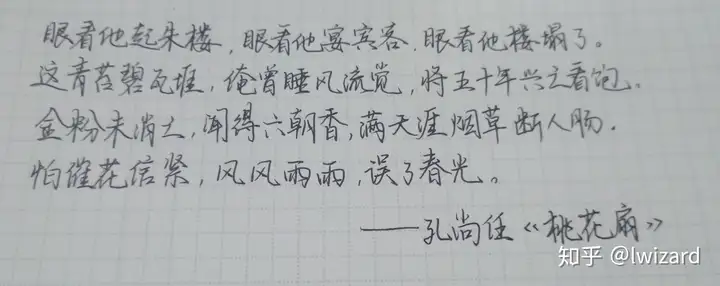 眼看他起朱楼，眼看他宴宾客，眼看他楼塌了。
这青苔碧瓦堆，俺曾睡风流觉，将五十年兴亡看饱。
金粉未消亡，闻得六朝香，满天涯烟草断人肠。
怕催花信紧，风风雨雨，误了春光。
——孔尚任《桃花扇》
知乎 @lwizard